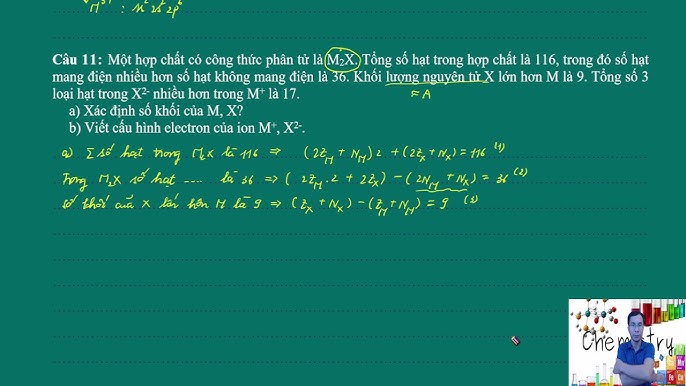 M³⁺ : 1s² 2s² 2p⁶
Câu 11: Một hợp chất có công thức phân tử là M₂X. Tổng số hạt trong hợp chất là 116, trong đó số hạt
mang điện nhiều hơn số hạt không mang điện là 36. Khối lượng nguyên tử X lớn hơn M là 9. Tổng số 3
loại hạt trong X²⁻ nhiều hơn trong M⁺ là 17.
≈ A
a) Xác định số khối của M, X?
b) Viết cấu hình electron của ion M⁺, X²⁻.
a) Σ số hạt trong M₂X là 116 => (2Z_M + N_M) 2 + (2Z_X + N_X) = 116 (1)
Trong M₂X số hạt .... là 36 => (2Z_M . 2 + 2Z_X) − (2N_M + N_X) = 36 (2)
số khối của X lớn hơn M là 9 => (Z_X + N_X) − (Z_M + N_M) = 9 (3)
Chemistry